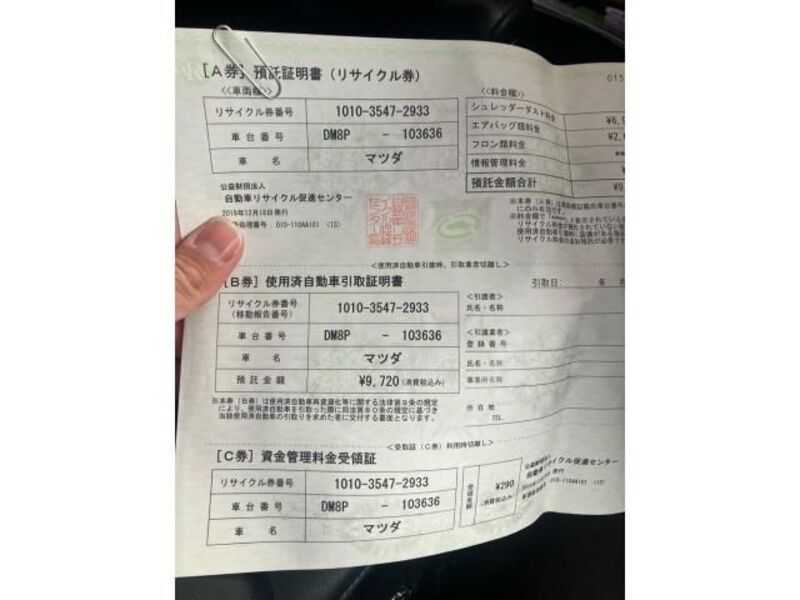 [A券] 預託証明書(リサイクル券)
015
<<車両欄>>
リサイクル券番号 1010-3547-2933
車台番号 DM8P - 103636
車名 マツダ
<<料金欄>>
シュレッダーダスト料金
エアバッグ類料金
フロン類料金
情報管理料金
預託金額合計 ¥9
公益財団法人
自動車リサイクル促進センター
2015年12月18日発行
処理番号:015-1104A101 <1S>
<使用済自動車引渡時、引取業者切離し>
[B券] 使用済自動車引取証明書
リサイクル券番号
(移動報告番号) 1010-3547-2933
車台番号 DM8P - 103636
車名 マツダ
預託金額 ¥9,720 (消費税込み)
※本券[B券]は使用済自動車再資源化等に関する法律第9条の規定
により、使用済自動車を引取った際に同法第80条の規定に基づき
当該使用済自動車の引取りを求めた者に交付する書面となります。
引取日: 年 月
<引渡者>
氏名・名称
<引渡業者>
登録番号
氏名・名称
事業所名称
所在地
TEL
<受取証(C券)利用時切離し>
[C券] 資金管理料金受領証
リサイクル券番号 1010-3547-2933
車台番号 DM8P - 103636
車名 マツダ
受領金額 ¥290
(消費税込み)
公益財団法人
自動車リサイクル促進センター